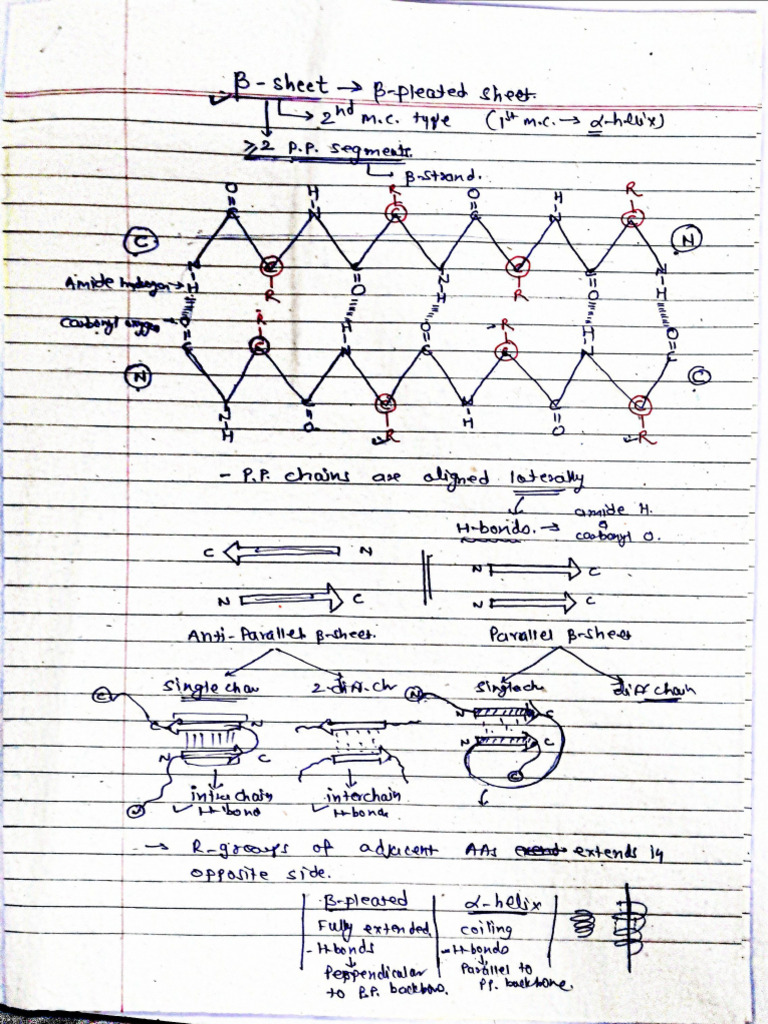 β-sheet → β-pleated sheet.
→ 2nd m.c. type (1st m.c. → α-helix)
≥2 P.P. segments.
→ β-strand.
O H R O H R
C N C C N C
C N
N C C N C C N
Amide hydrogen → H R O H R O H
Carbonyl oxygen → O R H O R H O
C C N C C N C
N C
N C C N C C
H O R H O R
- P.P. chains are aligned laterally
H-bonds. → amide H.
carbonyl O.
C N N C
N C N C
Anti-Parallel β-sheet. Parallel β-sheet
single chan 2-diff. ch single ch diff chain
C N
C N N C
N C N C
N C
intra chain interchain
H-bond H-bonds
→ R-groups of adjacent AAs extends in
opposite side.
β-pleated α-helix
Fully extended coiling
-H-bonds -H-bonds
Perpendicular Parallel to
to P.P. backbone. PP. backbone.